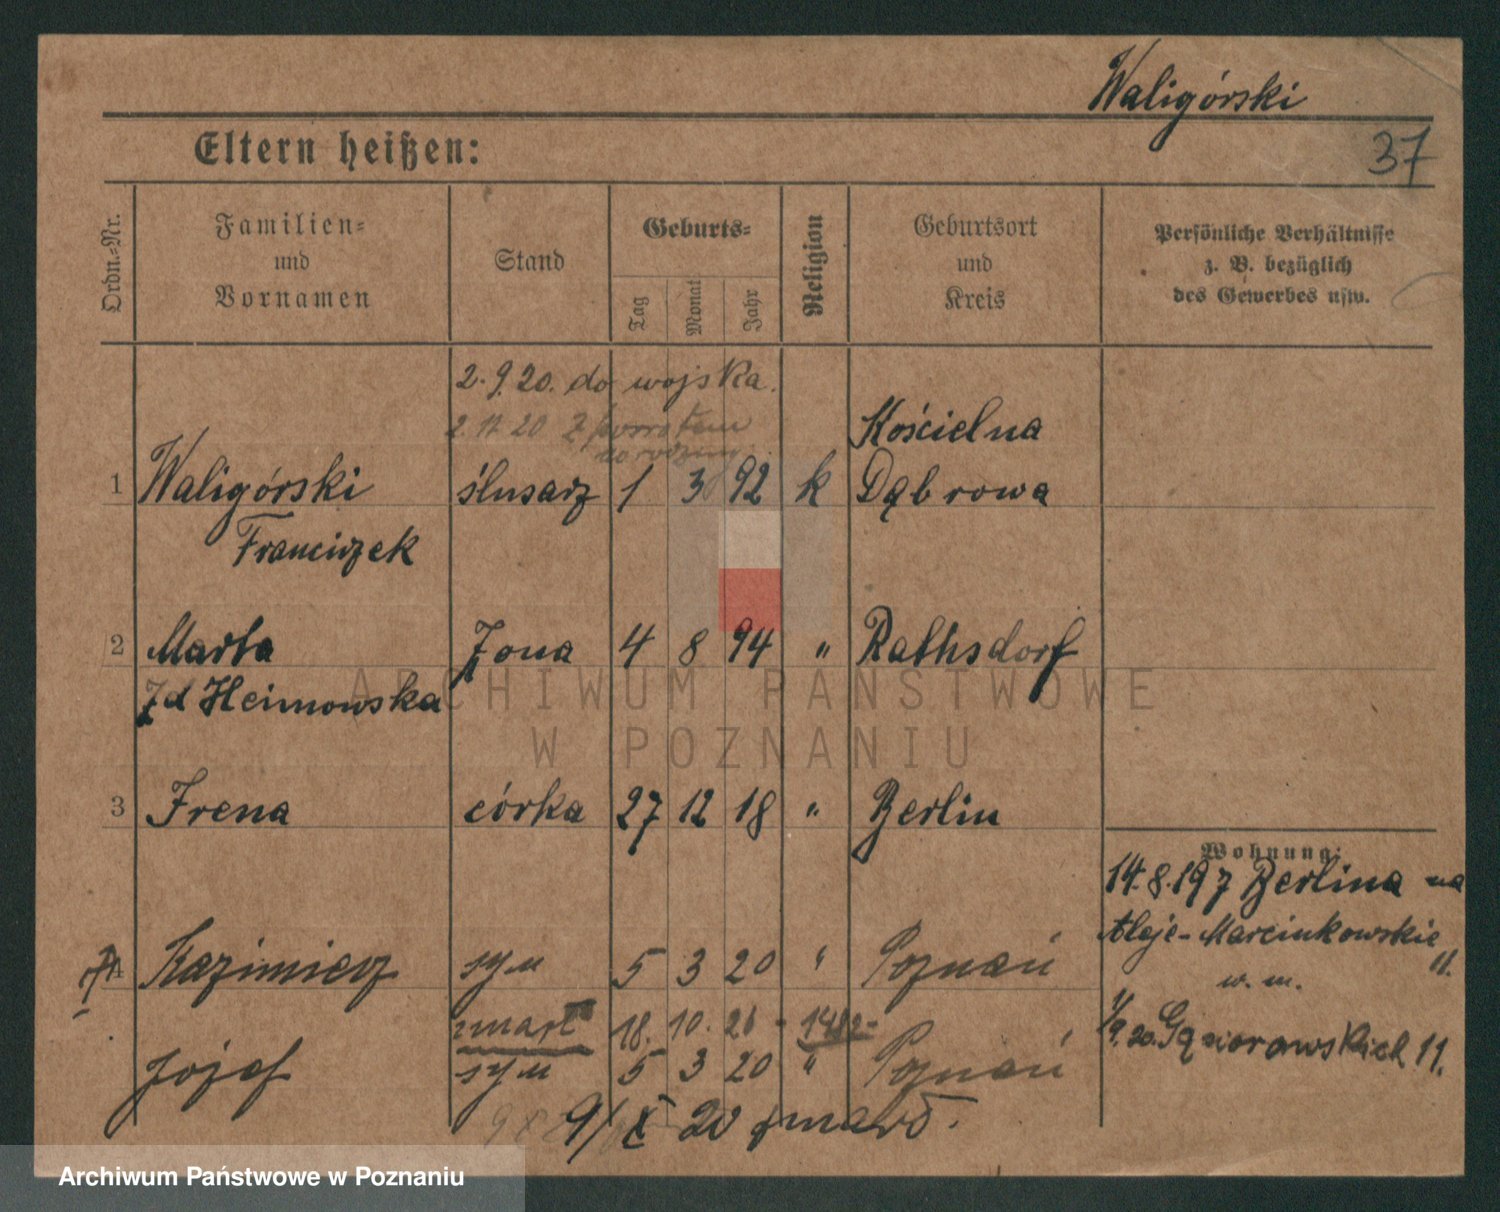 Waligórski
37
Eltern heißen:
Ordn.-Nr.
Familien-
und
Vornamen
Stand
Geburts-
Tag
Monat
Jahr
Religion
Geburtsort
und
Kreis
Persönliche Verhältnisse
z. B. bezüglich
des Gewerbes usw.
2.9.20. do wojska.
2. 11 20 z powrotem
Kościelna
1 Waligórski ślusarz 1 3 92 k Dąbrowa
Franciszek
2 Marta żona 4 8 94 " Rathsdorf
żd Heimowska
3 Irena córka 27 12 18 " Berlin
Wohnung:
14.8.19 z Berlina na
Aleje-Marcinkowskie
11.
w. m.
4 Kazimierz syn 5 3 20 " Poznań
1/9.20. Gąsiorowskich 11.
zmarł 18. 10. 26 - 1482-
Józef syn 5 3 20 " Poznań
9/X 20 zmarł.
ARCHIWUM PAŃSTWOWE
W POZNANIU
Archiwum Państwowe w Poznaniu